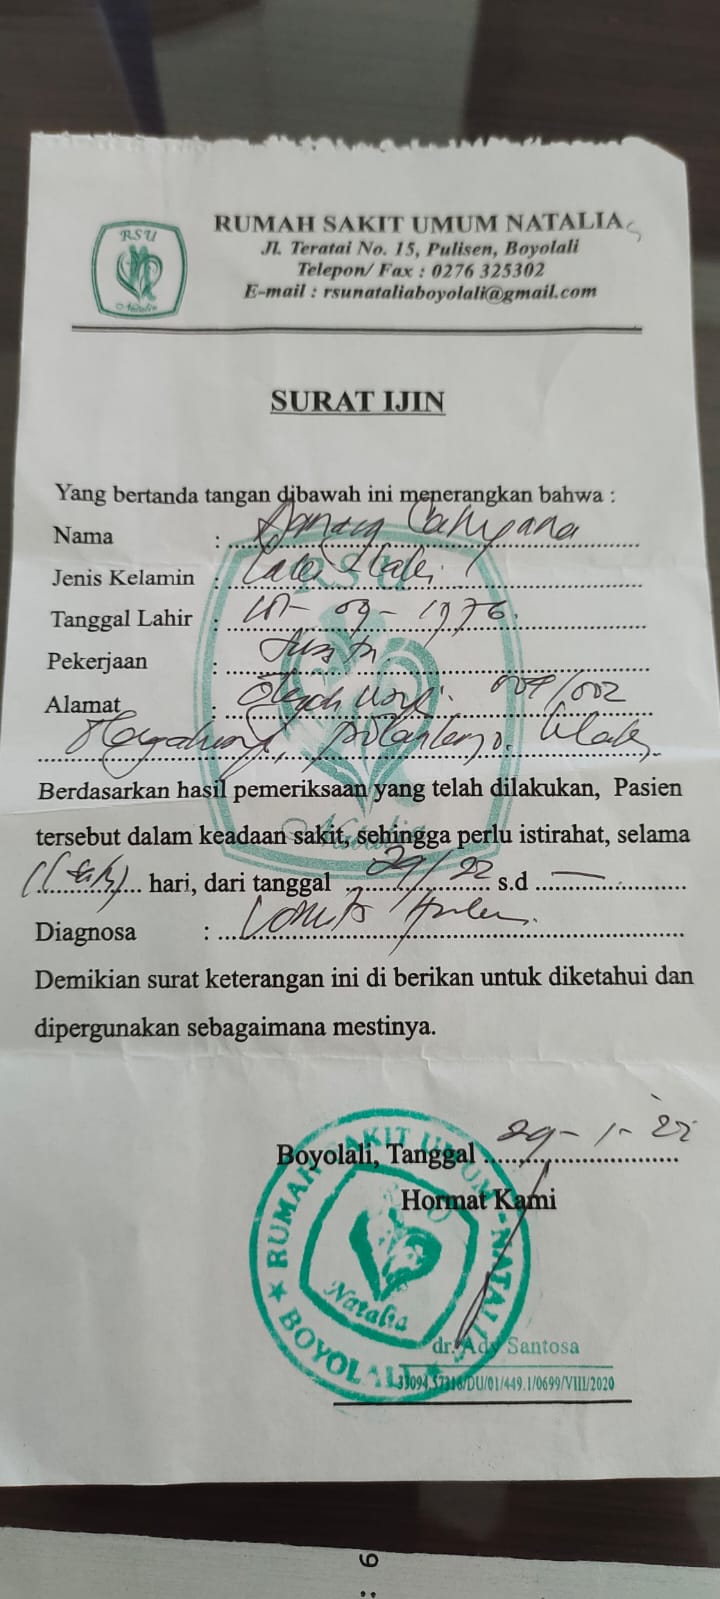 RSU
Natalia
RUMAH SAKIT UMUM NATALIA
Jl. Teratai No. 15, Pulisen, Boyolali
Telepon/ Fax : 0276 325302
E-mail : rsunataliaboyolali@gmail.com
SURAT IJIN
Yang bertanda tangan dibawah ini menerangkan bahwa :
Nama : Cahyana
Jenis Kelamin : Laki-laki
Tanggal Lahir : 09-1976
Pekerjaan :
Alamat : /002
Berdasarkan hasil pemeriksaan yang telah dilakukan, Pasien
tersebut dalam keadaan sakit, sehingga perlu istirahat, selama
hari, dari tanggal 29/ 22 s.d —
Diagnosa :
Demikian surat keterangan ini di berikan untuk diketahui dan
dipergunakan sebagaimana mestinya.
Boyolali, Tanggal 29-1-'22
Hormat Kami
RUMAH SAKIT UMUM NATALIA
Natalia
BOYOLALI
dr. Ady Santosa
/DU/01/449.1/0699/VIII/2020
6
: